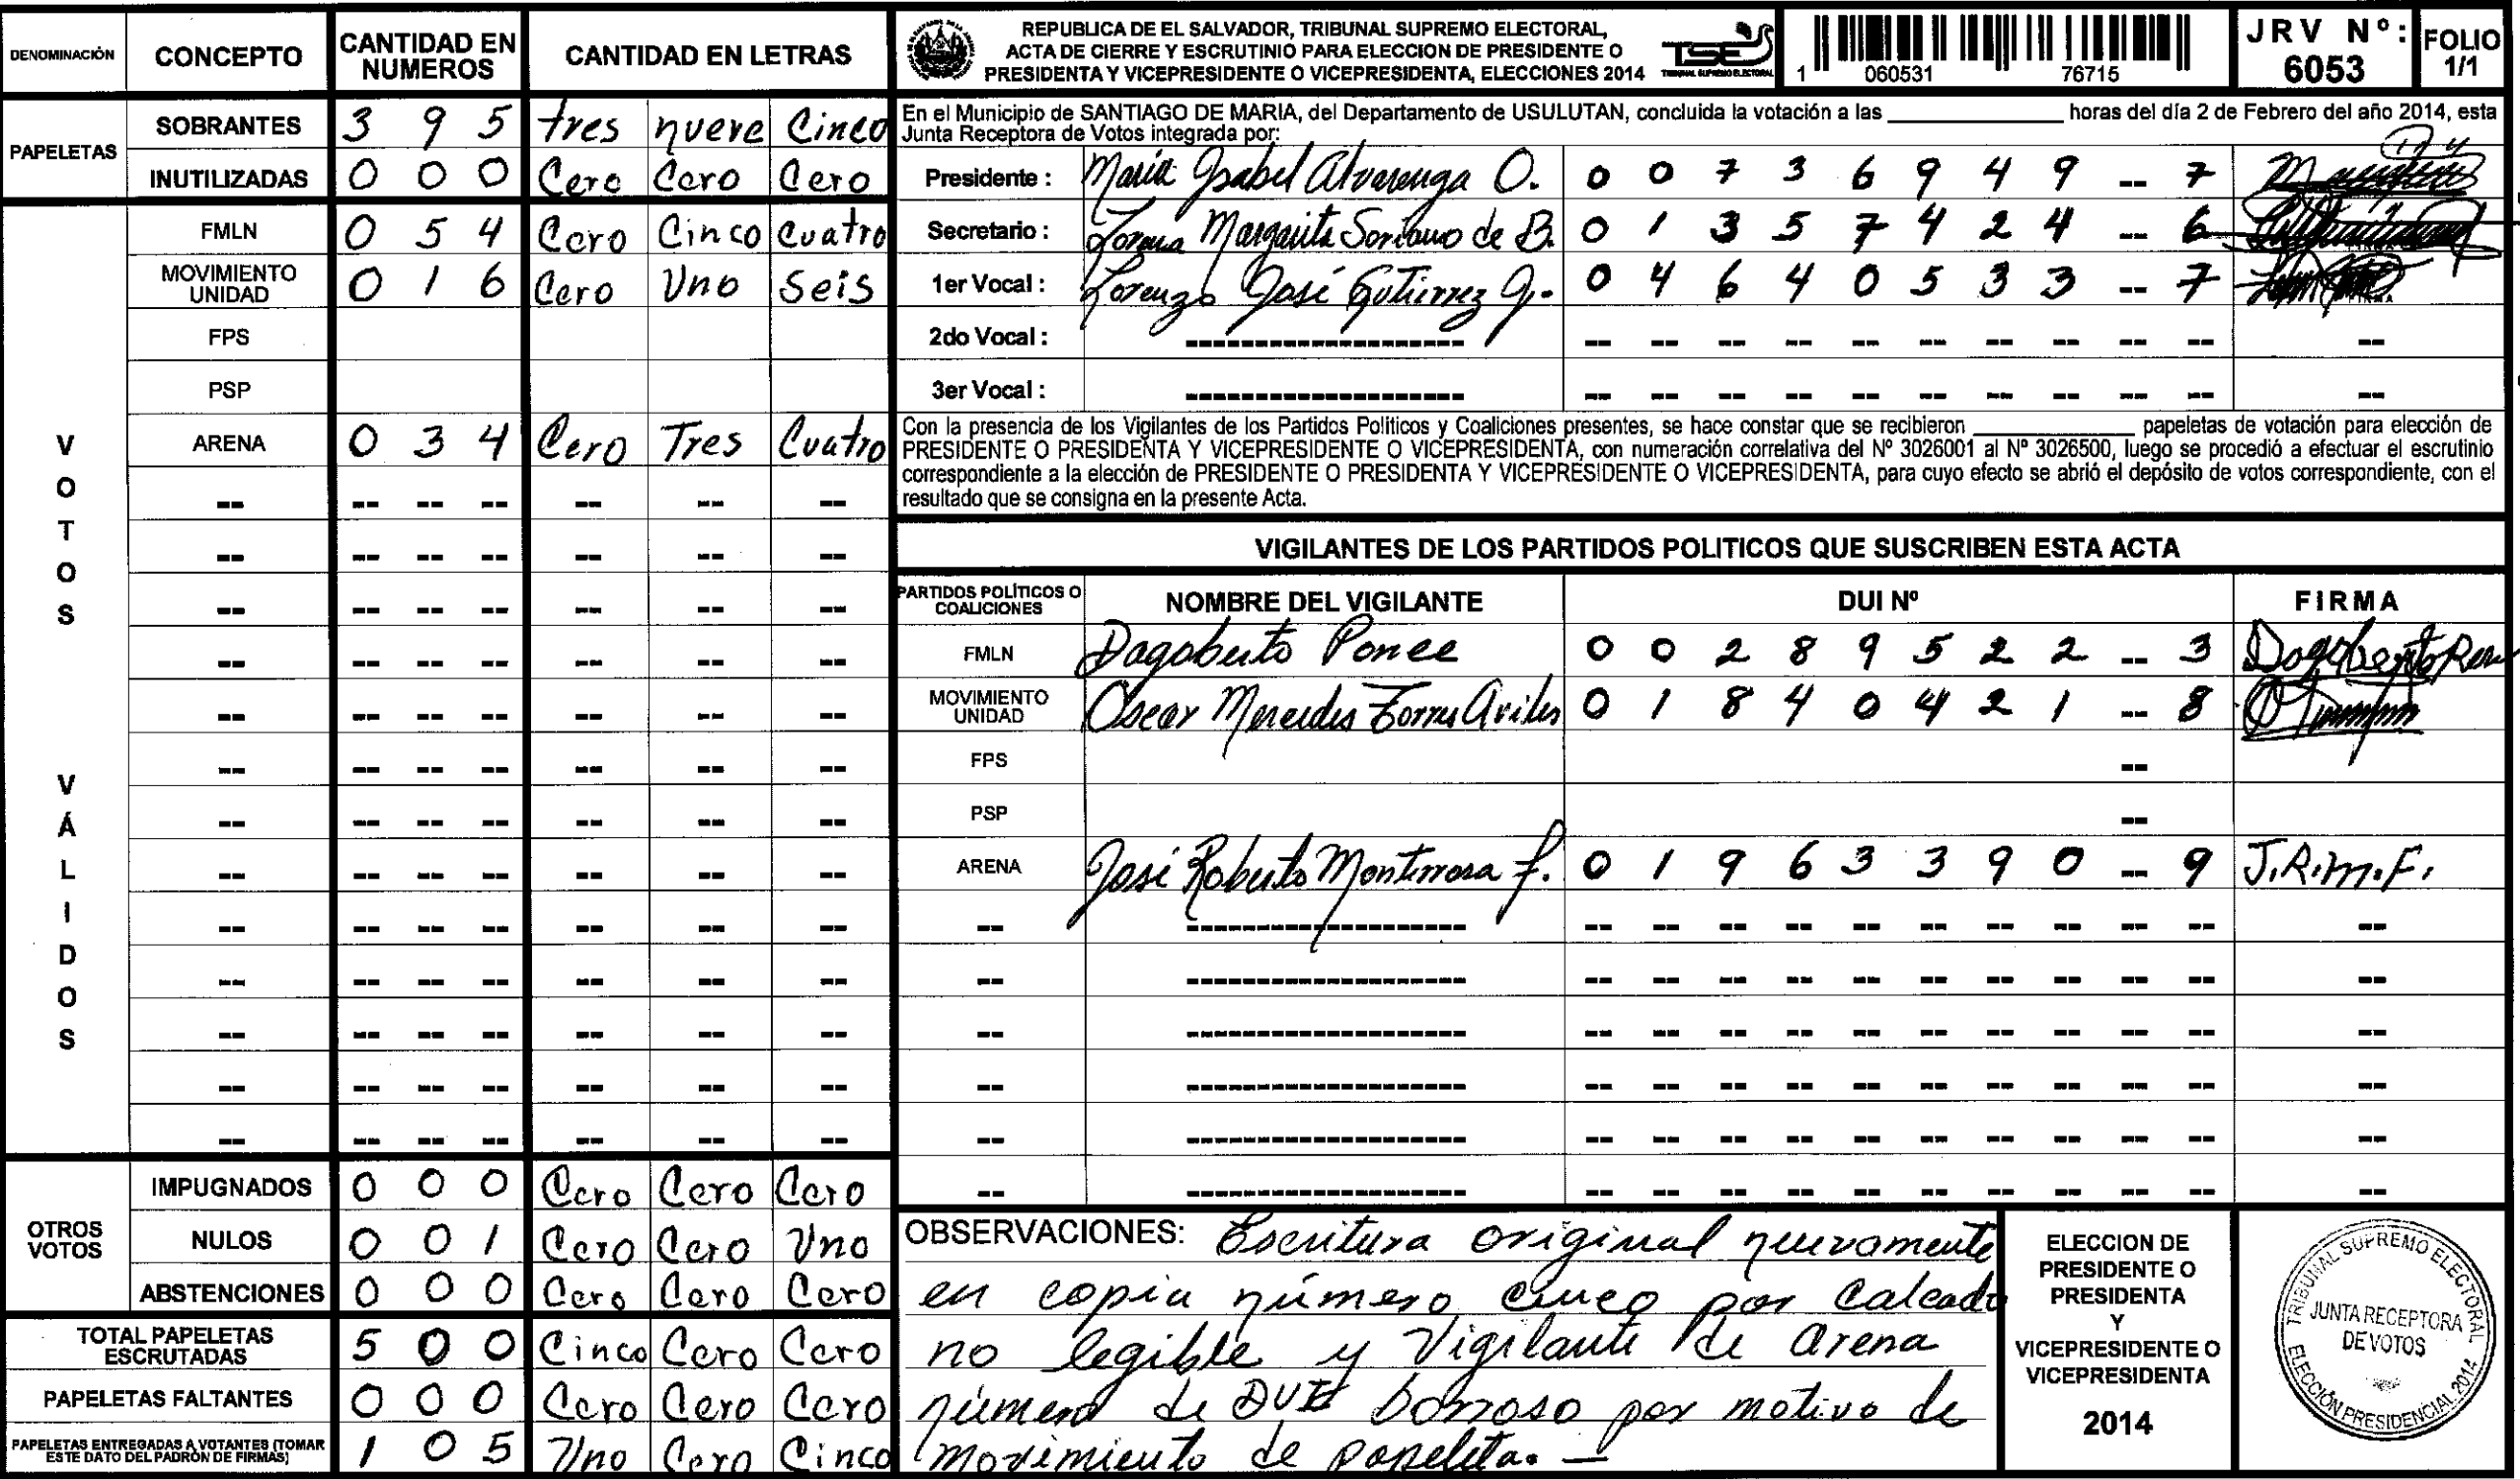 DENOMINACIÓN CONCEPTO CANTIDAD EN NUMEROS CANTIDAD EN LETRAS
PAPELETAS
SOBRANTES 3 9 5 tres nueve Cinco
INUTILIZADAS 0 0 0 Cero Cero Cero
VOTOS VÁLIDOS
FMLN 0 5 4 Cero Cinco Cuatro
MOVIMIENTO UNIDAD 0 1 6 Cero Uno Seis
FPS
PSP
ARENA 0 3 4 Cero Tres Cuatro
OTROS VOTOS
IMPUGNADOS 0 0 0 Cero Cero Cero
NULOS 0 0 1 Cero Cero Uno
ABSTENCIONES 0 0 0 Cero Cero Cero
TOTAL PAPELETAS ESCRUTADAS 5 0 0 Cinco Cero Cero
PAPELETAS FALTANTES 0 0 0 Cero Cero Cero
PAPELETAS ENTREGADAS A VOTANTES (TOMAR ESTE DATO DEL PADRÓN DE FIRMAS) 1 0 5 Uno Cero Cinco
REPUBLICA DE EL SALVADOR, TRIBUNAL SUPREMO ELECTORAL,
ACTA DE CIERRE Y ESCRUTINIO PARA ELECCION DE PRESIDENTE O
PRESIDENTA Y VICEPRESIDENTE O VICEPRESIDENTA, ELECCIONES 2014
TSE
TRIBUNAL SUPREMO ELECTORAL
1 060531 76715
JRV Nº: 6053
FOLIO 1/1
En el Municipio de SANTIAGO DE MARIA, del Departamento de USULUTAN, concluida la votación a las ____ horas del día 2 de Febrero del año 2014, esta
Junta Receptora de Votos integrada por:
Presidente : Maria Ysabel Alvarenga O. 0 0 7 3 6 9 4 9 -- 7
Secretario : Lorena Margarita Soriano de B. 0 1 3 5 7 4 2 4 -- 6
1er Vocal : Lorenzo José Gutierrez G. 0 4 6 4 0 5 3 3 -- 7
2do Vocal :
3er Vocal :
Con la presencia de los Vigilantes de los Partidos Políticos y Coaliciones presentes, se hace constar que se recibieron ____ papeletas de votación para elección de
PRESIDENTE O PRESIDENTA Y VICEPRESIDENTE O VICEPRESIDENTA, con numeración correlativa del Nº 3026001 al Nº 3026500, luego se procedió a efectuar el escrutinio
correspondiente a la elección de PRESIDENTE O PRESIDENTA Y VICEPRESIDENTE O VICEPRESIDENTA, para cuyo efecto se abrió el depósito de votos correspondiente, con el
resultado que se consigna en la presente Acta.
VIGILANTES DE LOS PARTIDOS POLITICOS QUE SUSCRIBEN ESTA ACTA
PARTIDOS POLÍTICOS O COALICIONES NOMBRE DEL VIGILANTE DUI Nº FIRMA
FMLN Dagoberto Ponce 0 0 2 8 9 5 2 2 -- 3 Dagoberto
MOVIMIENTO UNIDAD Oscar Mercedes Torres Aviles 0 1 8 4 0 4 2 1 -- 8
FPS --
PSP --
ARENA José Roberto Monterrosa F. 0 1 9 6 3 3 9 0 -- 9 J.R.M.F.
OBSERVACIONES: Escritura original nuevamente
en copia número cinco por calcado
no legible y Vigilante de arena
número de DUI borroso por motivo de
movimiento de papeleta. —
ELECCION DE
PRESIDENTE O
PRESIDENTA
Y
VICEPRESIDENTE O
VICEPRESIDENTA
2014
TRIBUNAL SUPREMO ELECTORAL
JUNTA RECEPTORA
DE VOTOS
ELECCIÓN PRESIDENCIAL 2014